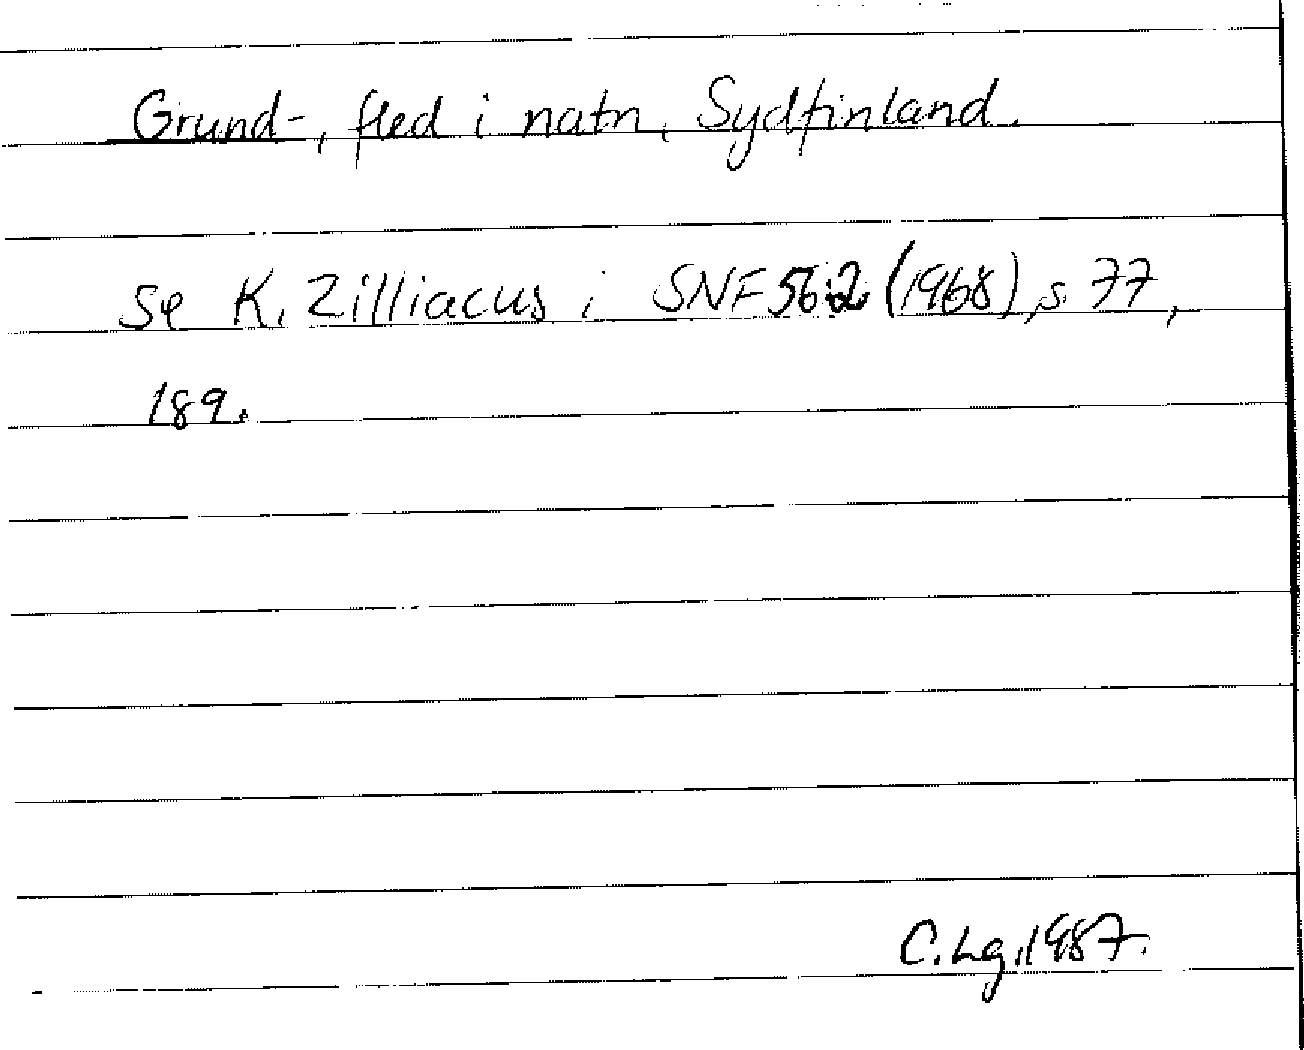 Grund-, fled i natn, Sydfinland.
Se K. Zilliacus i SNF 56:2 (1968), s 77,
189.
C.Lg.1987.